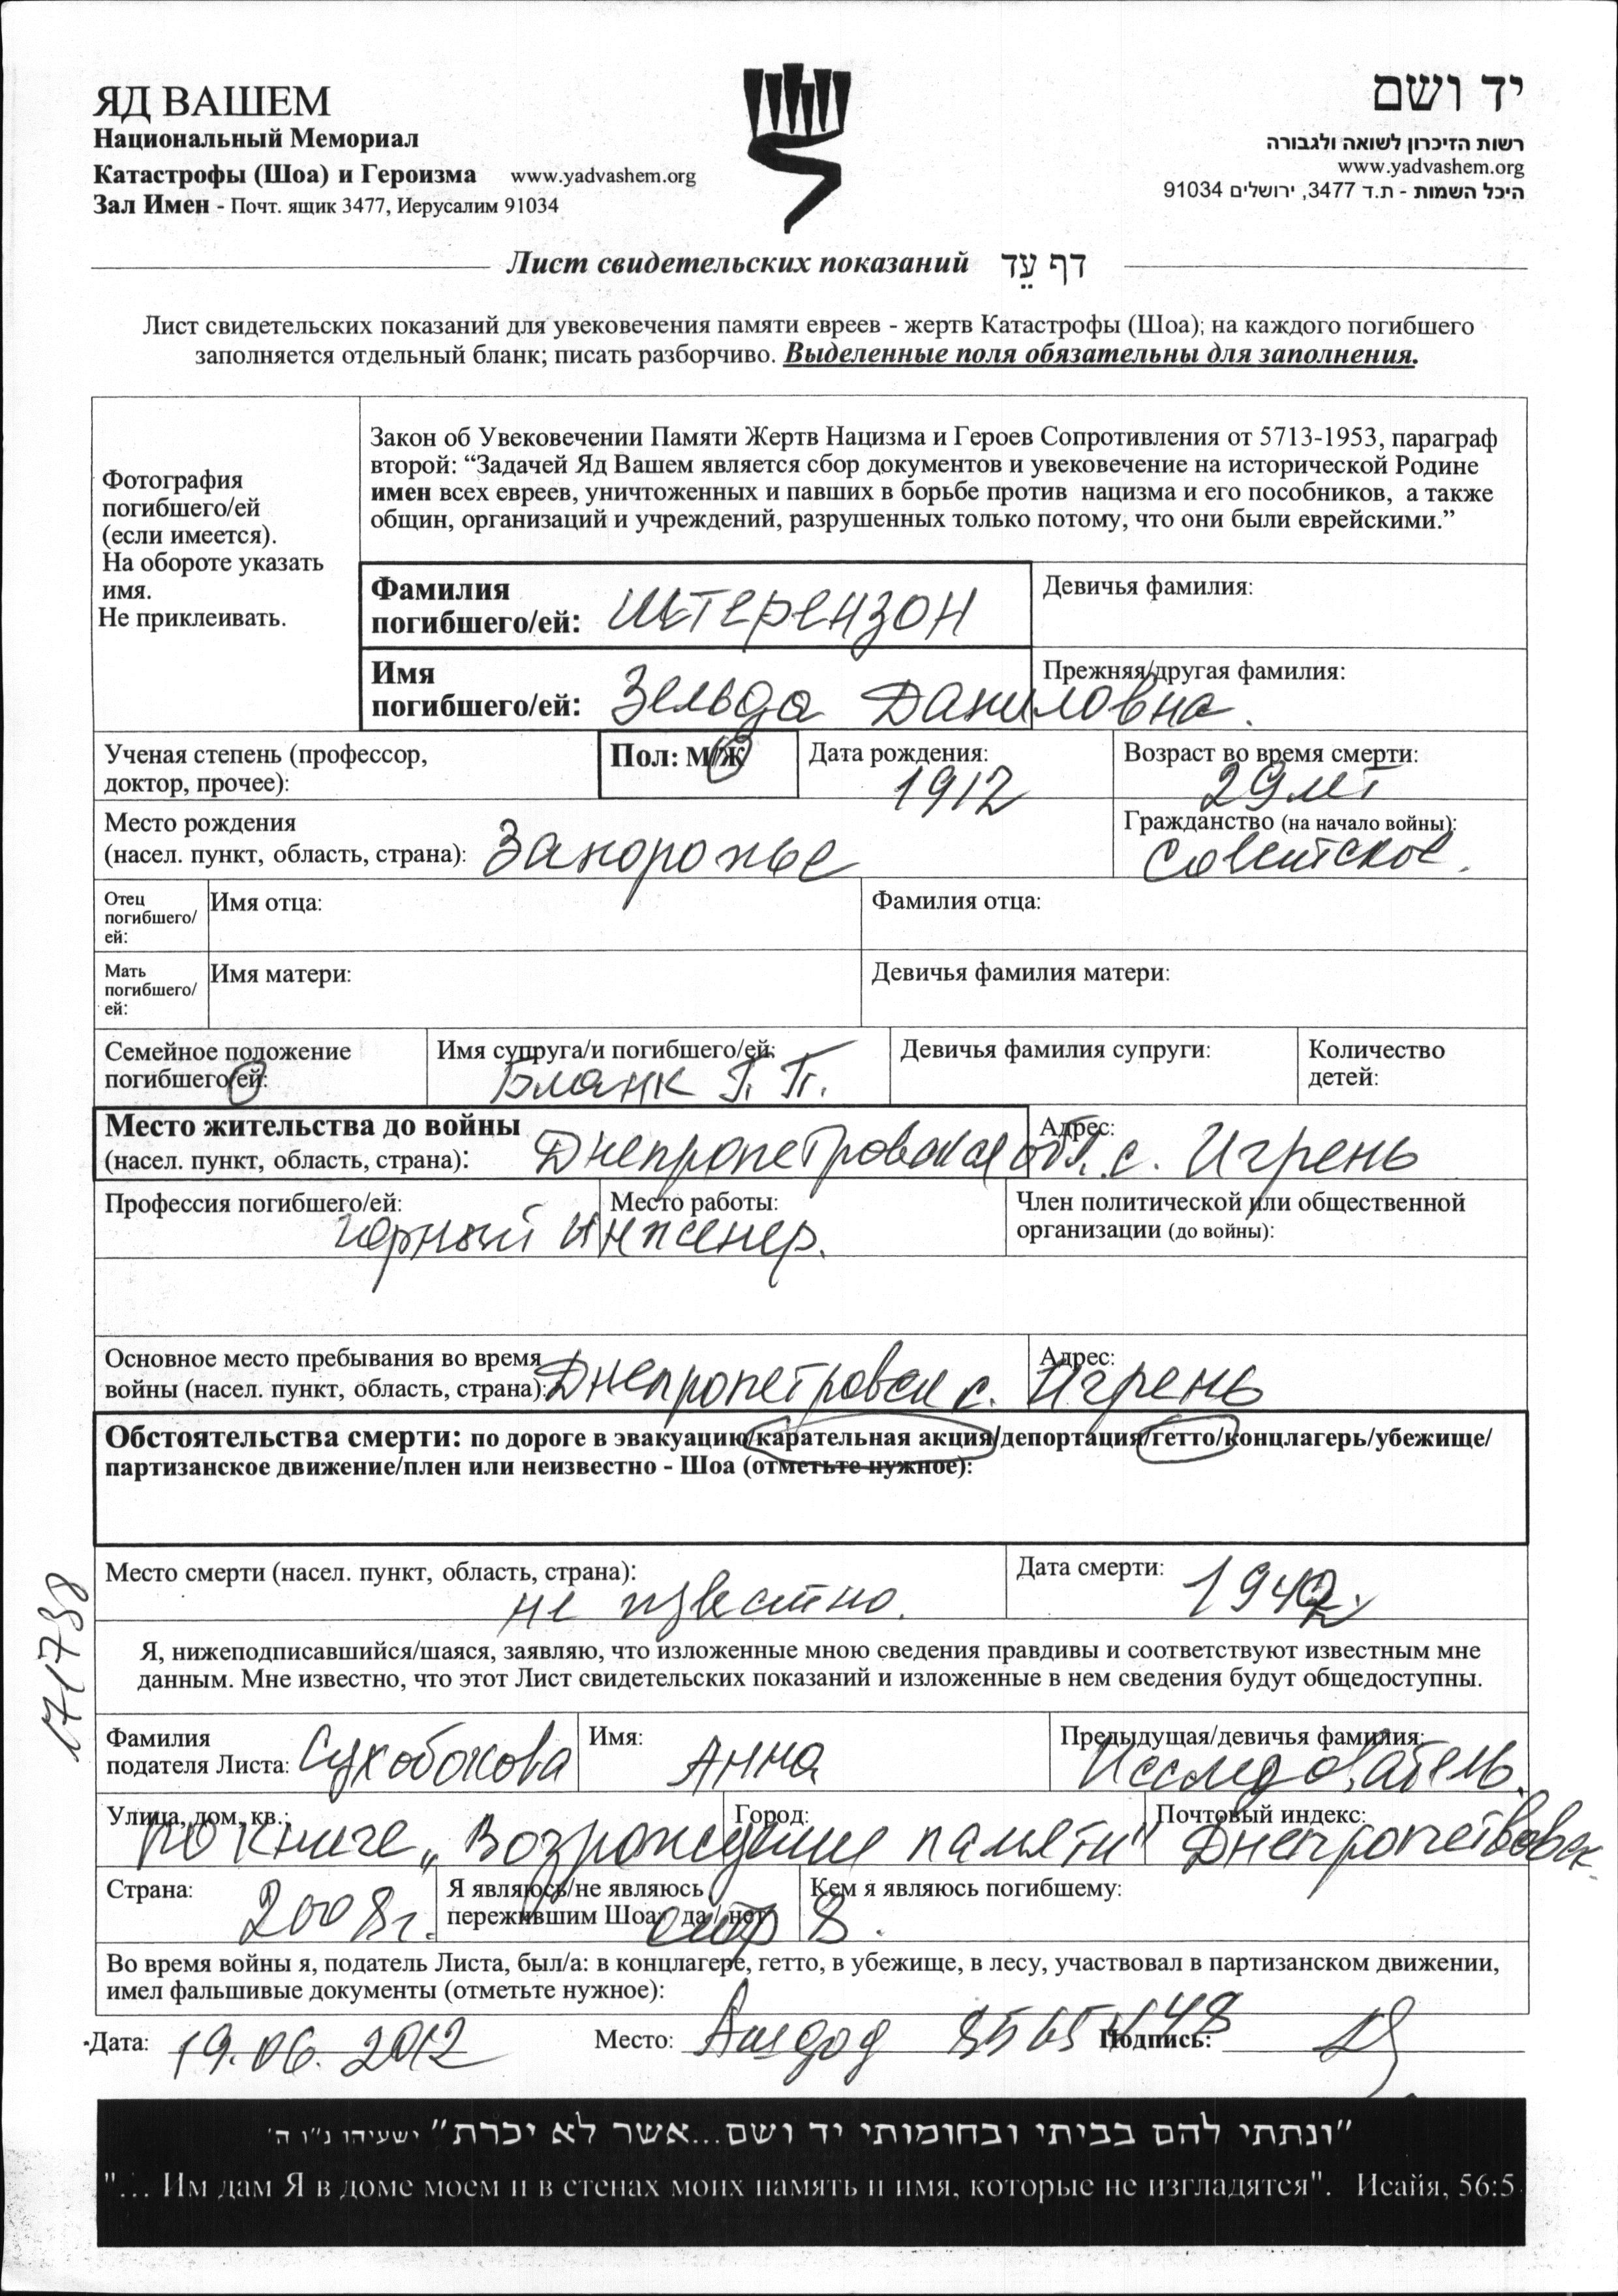 ЯД ВАШЕМ
Национальный Мемориал
Катастрофы (Шоа) и Героизма www.yadvashem.org
Зал Имен - Почт. ящик 3477, Иерусалим 91034
יד ושם
רשות הזיכרון לשואה ולגבורה
www.yadvashem.org
היכל השמות - ת.ד 3477, ירושלים 91034
Лист свидетельских показаний דף עֵד
Лист свидетельских показаний для увековечения памяти евреев - жертв Катастрофы (Шоа); на каждого погибшего
заполняется отдельный бланк; писать разборчиво. Выделенные поля обязательны для заполнения.
Фотография
погибшего/ей
(если имеется).
На обороте указать
имя.
Не приклеивать.
Закон об Увековечении Памяти Жертв Нацизма и Героев Сопротивления от 5713-1953, параграф
второй: “Задачей Яд Вашем является сбор документов и увековечение на исторической Родине
имен всех евреев, уничтоженных и павших в борьбе против нацизма и его пособников, а также
общин, организаций и учреждений, разрушенных только потому, что они были еврейскими.”
Фамилия
погибшего/ей: Штерензон
Девичья фамилия:
Имя
погибшего/ей: Зельда Даниловна.
Прежняя/другая фамилия:
Ученая степень (профессор,
доктор, прочее):
Пол: М/Ж
Дата рождения:
1912
Возраст во время смерти:
29 лет
Место рождения
(насел. пункт, область, страна): Запорожье
Гражданство (на начало войны):
Советское.
Отец
погибшего/
ей:
Имя отца:
Фамилия отца:
Мать
погибшего/
ей:
Имя матери:
Девичья фамилия матери:
Семейное положение
погибшего/ей:
Имя супруга/и погибшего/ей:
Бланк Г. Г.
Девичья фамилия супруги:
Количество
детей:
Место жительства до войны
(насел. пункт, область, страна): Днепропетровская обл. с. Игрень
Адрес:
Профессия погибшего/ей:
Место работы:
горный инженер.
Член политической или общественной
организации (до войны):
Основное место пребывания во время
войны (насел. пункт, область, страна): Днепропетровск с. Игрень
Адрес:
Обстоятельства смерти: по дороге в эвакуацию/карательная акция/депортация/гетто/концлагерь/убежище/
партизанское движение/плен или неизвестно - Шоа (отметьте нужное):
Место смерти (насел. пункт, область, страна):
не известно.
Дата смерти:
1942г
171738
Я, нижеподписавшийся/шаяся, заявляю, что изложенные мною сведения правдивы и соответствуют известным мне
данным. Мне известно, что этот Лист свидетельских показаний и изложенные в нем сведения будут общедоступны.
Фамилия
подателя Листа: Сухобокова
Имя:
Анна
Предыдущая/девичья фамилия:
Исследователь.
Улица, дом, кв.:
Город:
Почтовый индекс:
по книге „Возрождение памяти" Днепропетвовск
Страна:
2008г.
Я являюсь/не являюсь
пережившим Шоа: да / нет
стр 8.
Кем я являюсь погибшему:
Во время войны я, податель Листа, был/а: в концлагере, гетто, в убежище, в лесу, участвовал в партизанском движении,
имел фальшивые документы (отметьте нужное):
Дата: 19.06.2012 Место: Ашдод Подпись:
"ונתתי להם בביתי ובחומותי יד ושם...אשר לא יכרת" ישעיהו נ"ו ה'
"... Им дам Я в доме моем и в стенах моих память и имя, которые не изгладятся". Исайя, 56:5